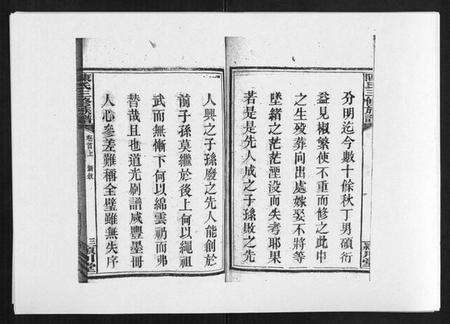 分明迄今數十餘秋丁男碩衍
益見椒繁使不重而修之此中
之生歿葬向出處嫁娶不將等
墜緒之茫茫湮沒而失考耶果
若是是先人成之子孫敗之先
人興之子孫廢之先人能創於
前子孫莫繼於後上何以繩祖
武而無慚下何以綿雲礽而弗
替哉且也道光刷譜咸豐墨冊
人心參差難稱全璧雖無失序
陳氏三修族譜
卷首上
三
潁川堂